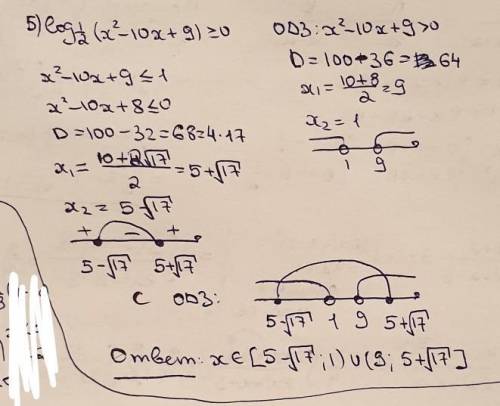 5) log 1/2 (x²-10x+9) ≥0
x²-10x+9 ≤ 1
x²-10x+8 ≤0
D=100-32=68=4·17
x₁= (10+2√17)/2 = 5+√17
x₂= 5-√17
+ - +
5-√17 5+√17
ОДЗ: x²-10x+9>0
D=100-36= 64
x₁= (10+8)/2 =9
x₂=1
1 9
С ОДЗ:
5-√17 1 9 5+√17
Ответ: x∈[5-√17; 1)∪(9; 5+√17]